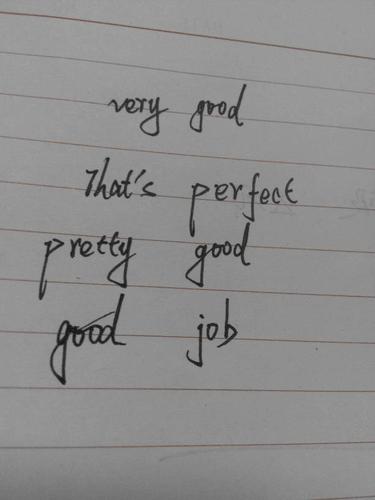 very good
That's perfect
pretty good
good job